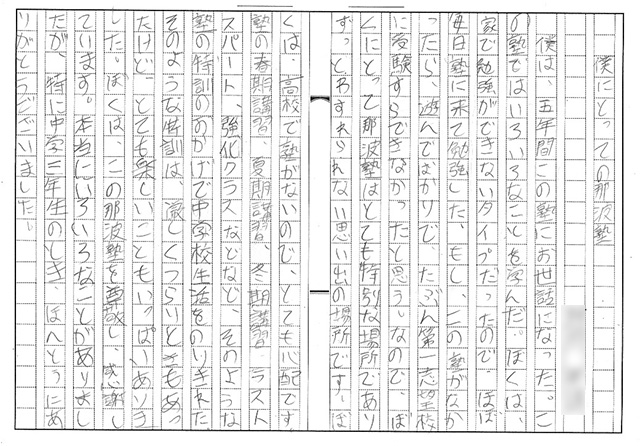 僕にとっての那波塾
僕は、五年間この塾にお世話になった。こ
の塾ではいろいろなことを学んだ。ぼくは、
家で勉強ができないタイプだったので、ほぼ
毎日塾に来て勉強した。もし、この塾がなか
ったら、遊んでばかりで、たぶん第一志望校
に受験すらできなかったと思う。なので、ぼ
くにとって那波塾はとても特別な場所であり
ずっとわすれられない思い出の場所です。ぼ
くは、高校で塾がないので、とても心配です
塾の春期講習、夏期講習、冬期講習、ラスト
スパート、強化クラスなどなど、そのような
塾の特訓のおかげで中学校生活をのりきれた
そのような特訓は、激しくつらいときもあっ
たけど、とても楽しいこともいっぱいありま
した。ぼくは、この那波塾を尊敬し、感謝し
ています。本当にいろいろなことがありまし
たが、特に中学三年生のとき、ほんとうにあ
りがとうございました。